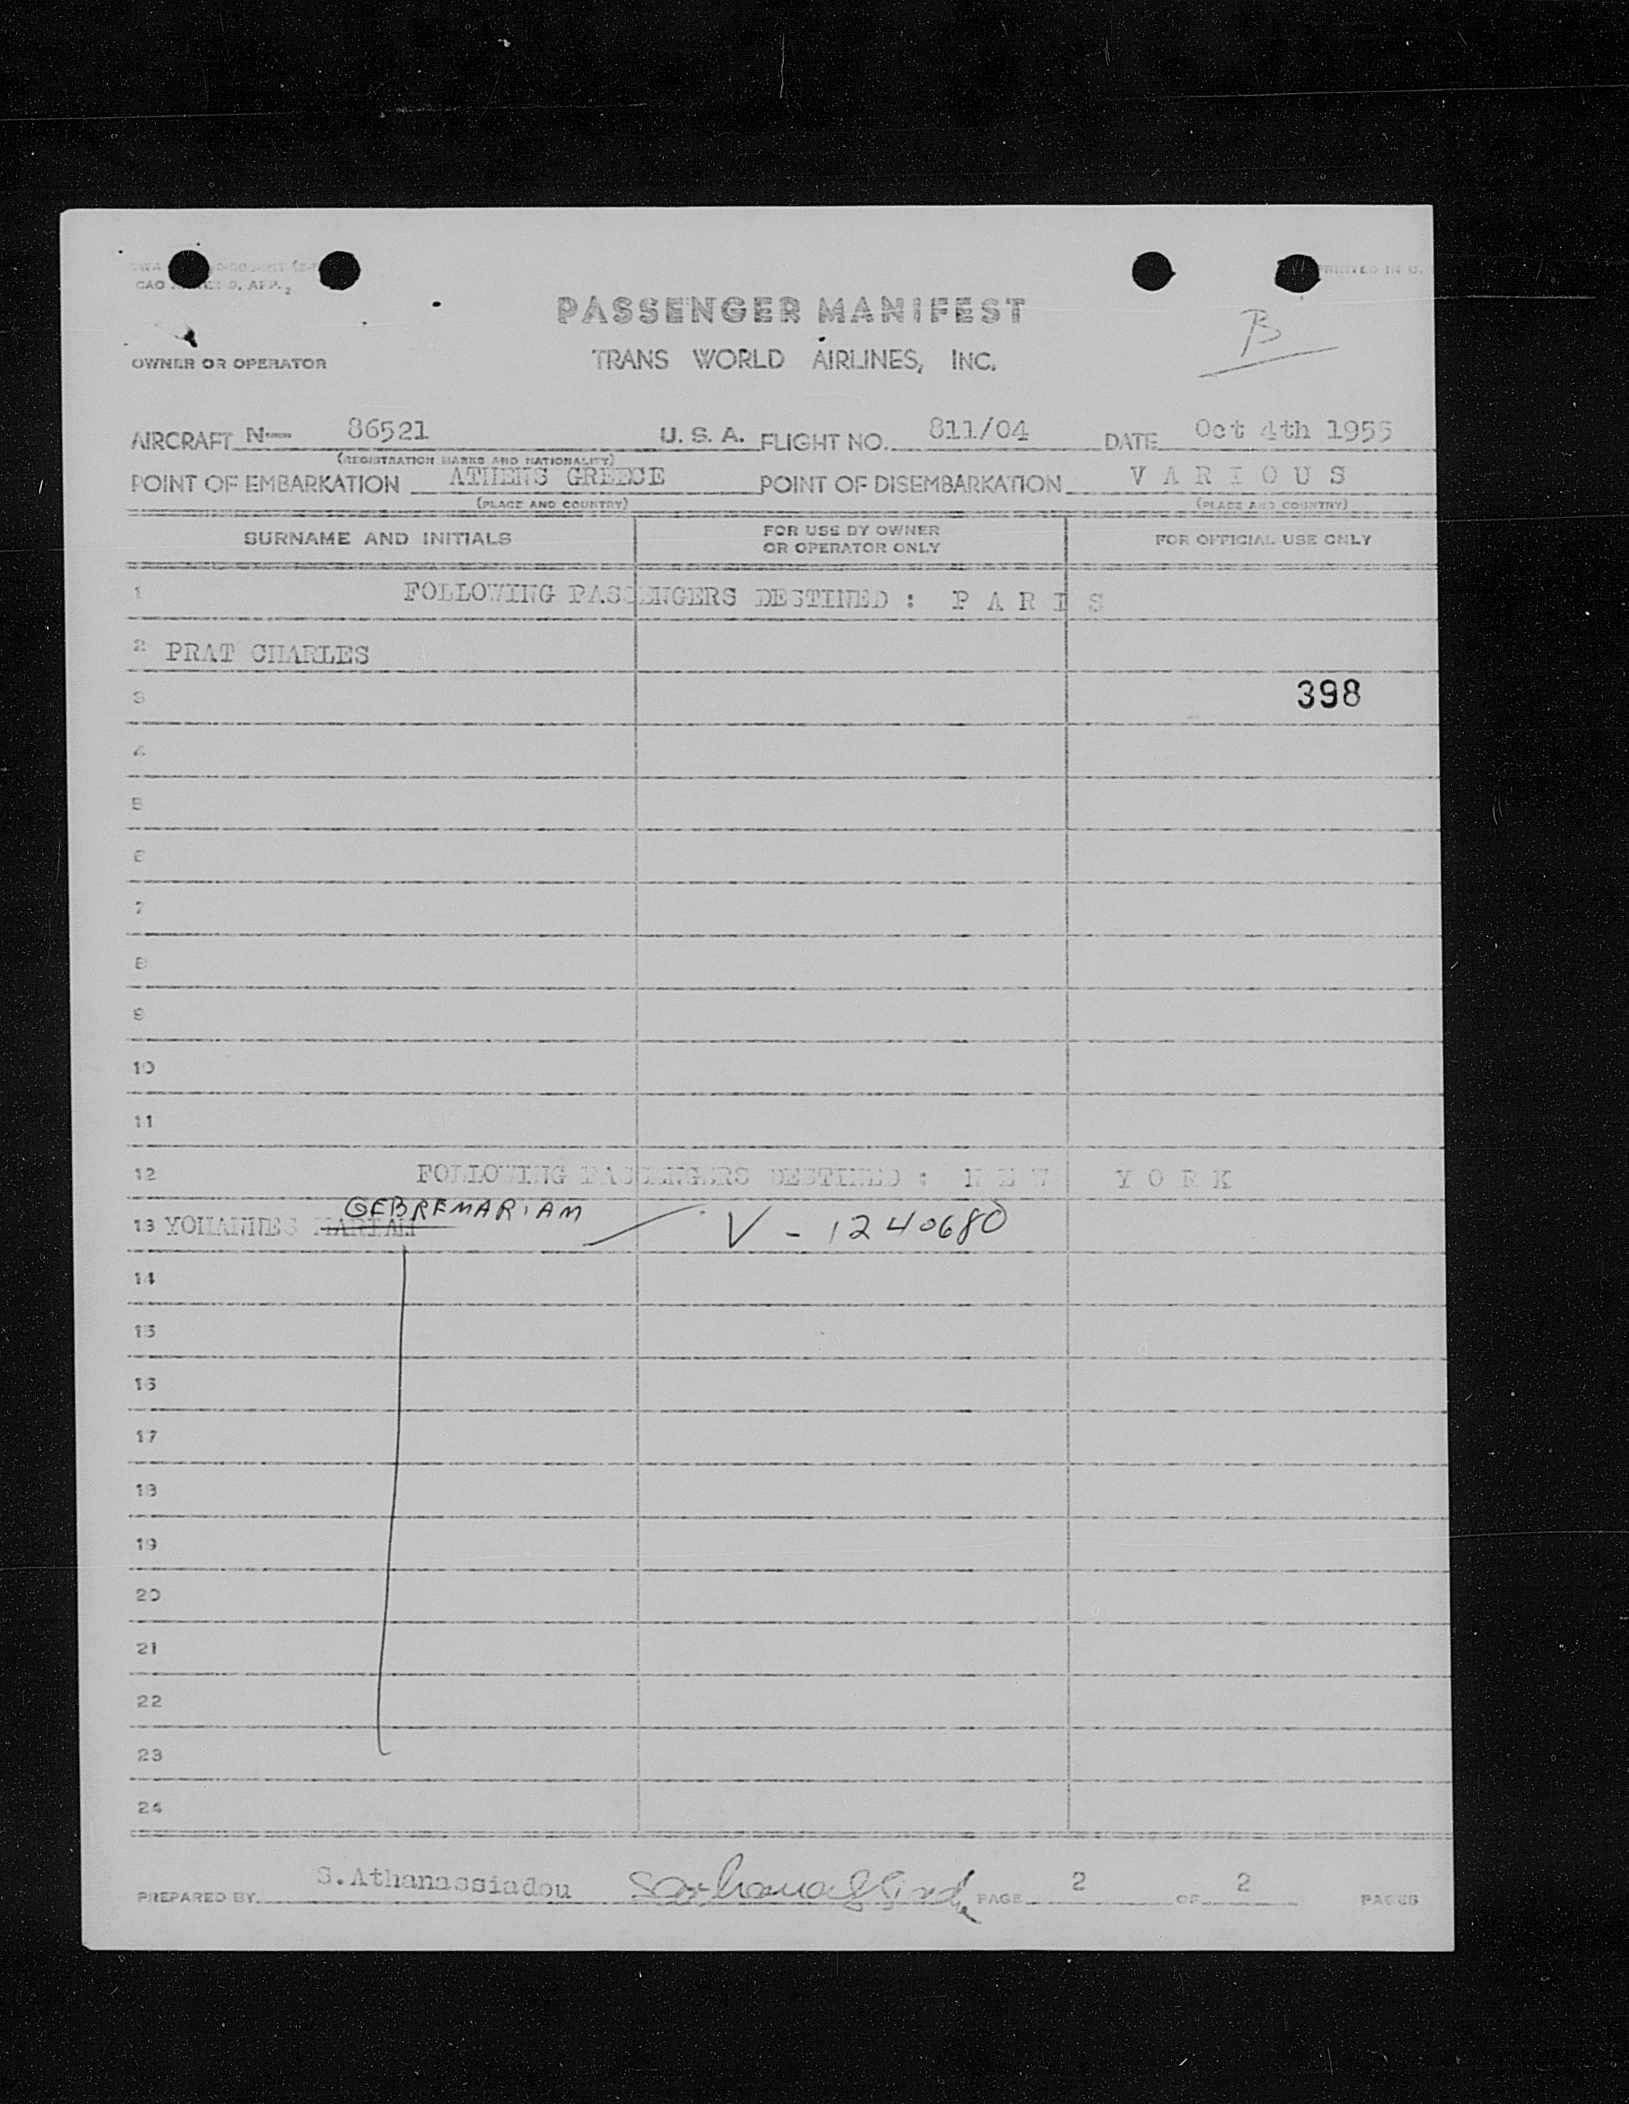 CAO
PRINTED IN U.
PASSENGER MANIFEST
B
OWNER OR OPERATOR
TRANS WORLD AIRLINES, INC.
AIRCRAFT N— 86521 U. S. A. FLIGHT NO. 811/04 DATE Oct 4th 1955
(REGISTRATION MARKS AND NATIONALITY)
POINT OF EMBARKATION ATHENS GREECE POINT OF DISEMBARKATION V A R I O U S
(PLACE AND COUNTRY) (PLACE AND COUNTRY)
SURNAME AND INITIALS FOR USE BY OWNER OR OPERATOR ONLY FOR OFFICIAL USE ONLY
1 FOLLOWING PASSENGERS DESTINED : P A R I S
2 PRAT CHARLES
3 398
4
5
6
7
8
9
10
11
12 FOLLOWING PASSENGERS DESTINED : N E W Y O R K
GEBREMARIAM
13 YOHANNES MARIAM V - 1240680
14
15
16
17
18
19
20
21
22
23
24
PREPARED BY S.Athanassiadou PAGE 2 OF 2 PAGES